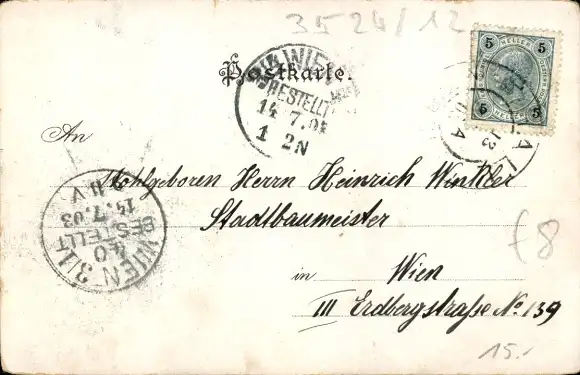 3524/12
Postkarte.
5 HELLER 5
5 5
WIEN
BESTELLT
14.7.03
1 2N
An
Wohlgeboren Herrn Heinrich Winkler
Stadtbaumeister
in Wien
III Erdbergstraße No. 139
WIEN 3/1
40
BESTELLT
14.7.03
II.V
f8
15.-